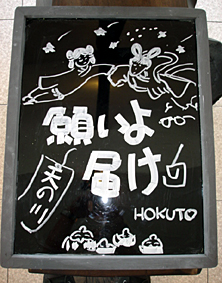 願いよ
届け
天の川
HOKUTO